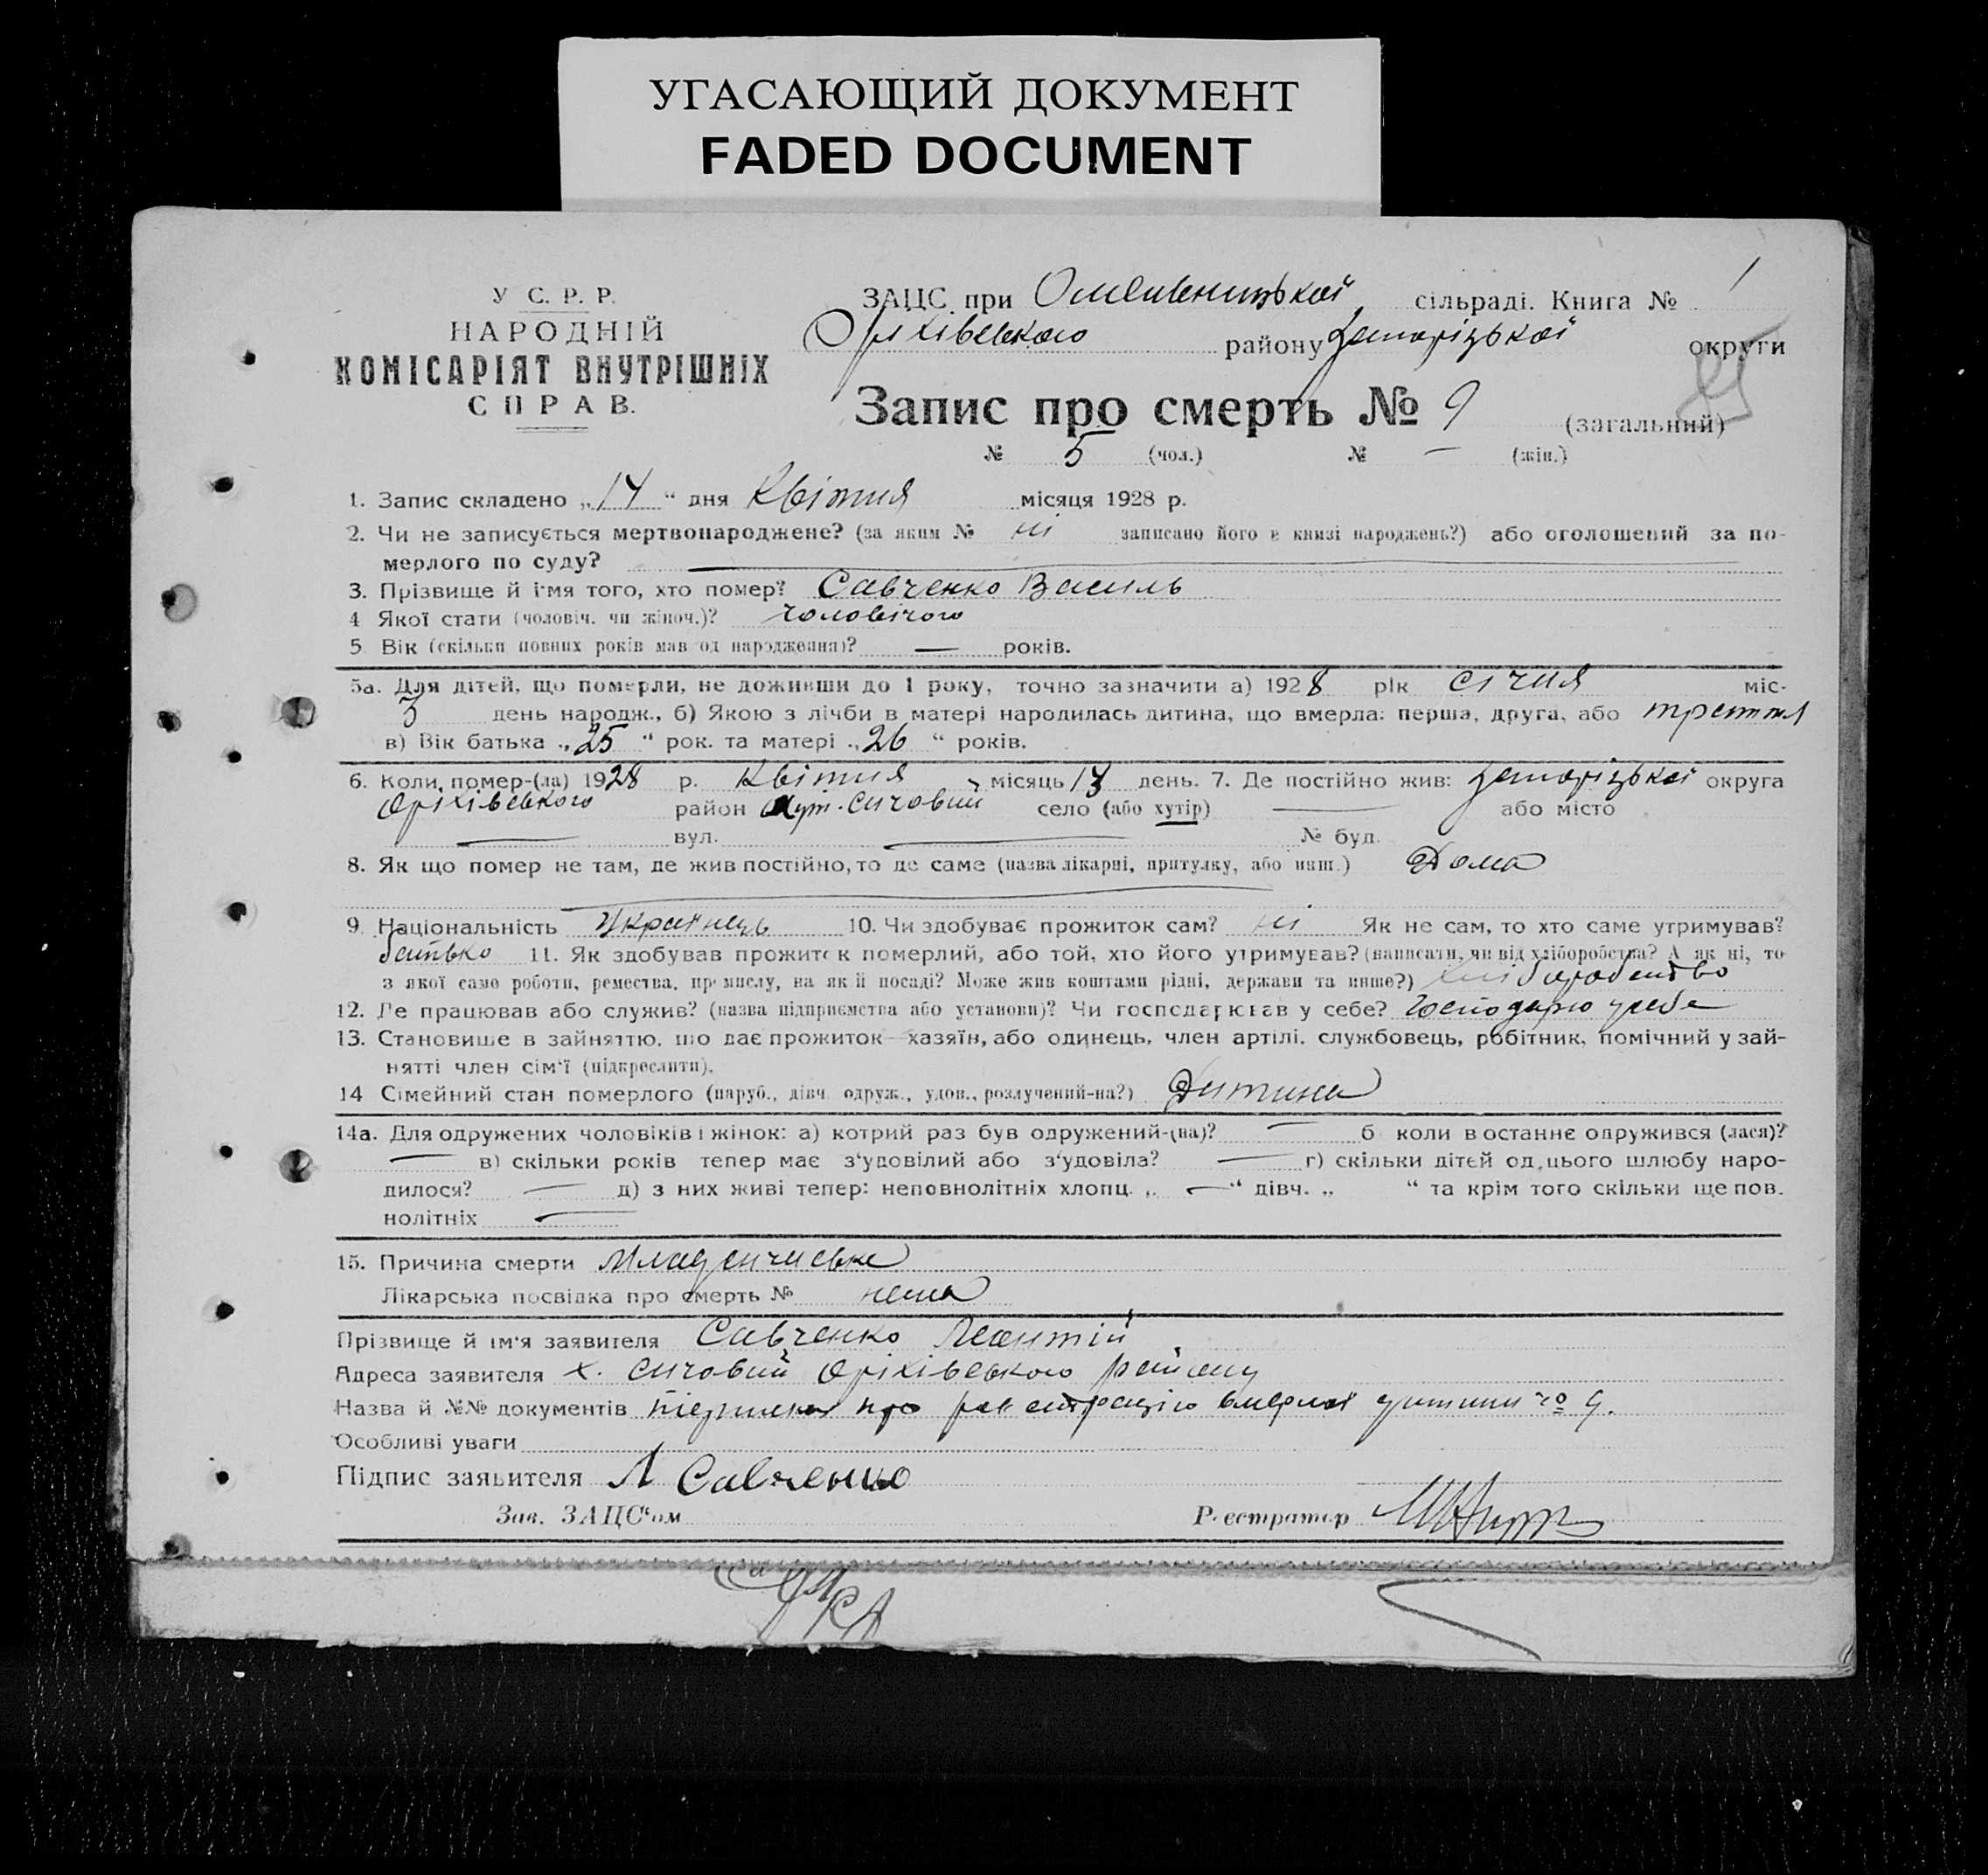 УГАСАЮЩИЙ ДОКУМЕНТ
FADED DOCUMENT
У С. Р. Р.
НАРОДНІЙ
КОМІСАРІЯТ ВНУТРІШНІХ
СПРАВ.
ЗАЦС при Омельницькой сільраді. Книга № 1
Оріхівського району Запоріцької округи
Запис про смерть № 9 (загальний)
№ 5 (чол.) № — (жін.)
1. Запис складено „14“ дня Квітня місяця 1928 р.
2. Чи не записується мертвонароджене? (за яким № ні записано його в книзі народжень?) або оголошений за по-
мерлого по суду? —
3. Прізвище й ім'я того, хто помер? Савченко Василь
4 Якої стати (чоловіч. чи жіноч.)? чоловічого
5 Вік (скільки повних років мав од народження)? — років.
5а. Для дітей, що померли, не доживши до 1 року, точно зазначити а) 1928 рік січня міс-
3 день народж., б) Якою з лічби в матері народилась дитина, що вмерла: перша, друга, або третя
в) Вік батька „25“ рок. та матері „26“ років.
6. Коли помер-(ла) 1928 р. Квітня місяць 13 день. 7. Де постійно жив: Запоріцької округа
Оріхівського район хут. Сичовий село (або хутір) — або місто
— вул. — № буд.
8. Як що помер не там, де жив постійно, то де саме (назва лікарні, притулку, або инш.) Дома
9 Національність Українець 10. Чи здобуває прожиток сам? ні Як не сам, то хто саме утримував?
батько 11. Як здобував прожиток померлий, або той, хто його утримував? (написати, чи від хліборобства? А як ні, то
з якої саме роботи, ремества, промислу, на якій посаді? Може жив коштами рідні, держави та инше?) хліборобство
12. Де працював або служив? (назва підприємства або установи)? Чи господарював у себе? Господарю у себе
13. Становище в зайняттю, що дає прожиток—хазяїн, або одинець, член артілі, службовець, робітник, помічний у зай-
нятті член сім'ї (підкреслити).
14 Сімейний стан померлого (паруб., дівч. одруж., удов., розлучений-на?) Дитина
14а. Для одружених чоловіків і жінок: а) котрий раз був одружений-(на)? — б коли востаннє одружився (лася)?
— в) скільки років тепер має з'удовілий або з'удовіла? — г) скільки дітей од цього шлюбу наро-
дилося? — д) з них живі тепер: неповнолітніх хлопц. „—“ дівч. „ “ та крім того скільки ще пов.
нолітніх —
15. Причина смерти Младенчиська
Лікарська посвідка про смерть № нема
Прізвище й ім'я заявителя Савченко Леонтій
Адреса заявителя х. Сичовий Оріхівського району
Назва й №№ документів про реєстрацію вмерлої дитини № 9.
Особливі уваги
Підпис заявителя Л Савченко
Зав. ЗАЦС'ом Реєстратор